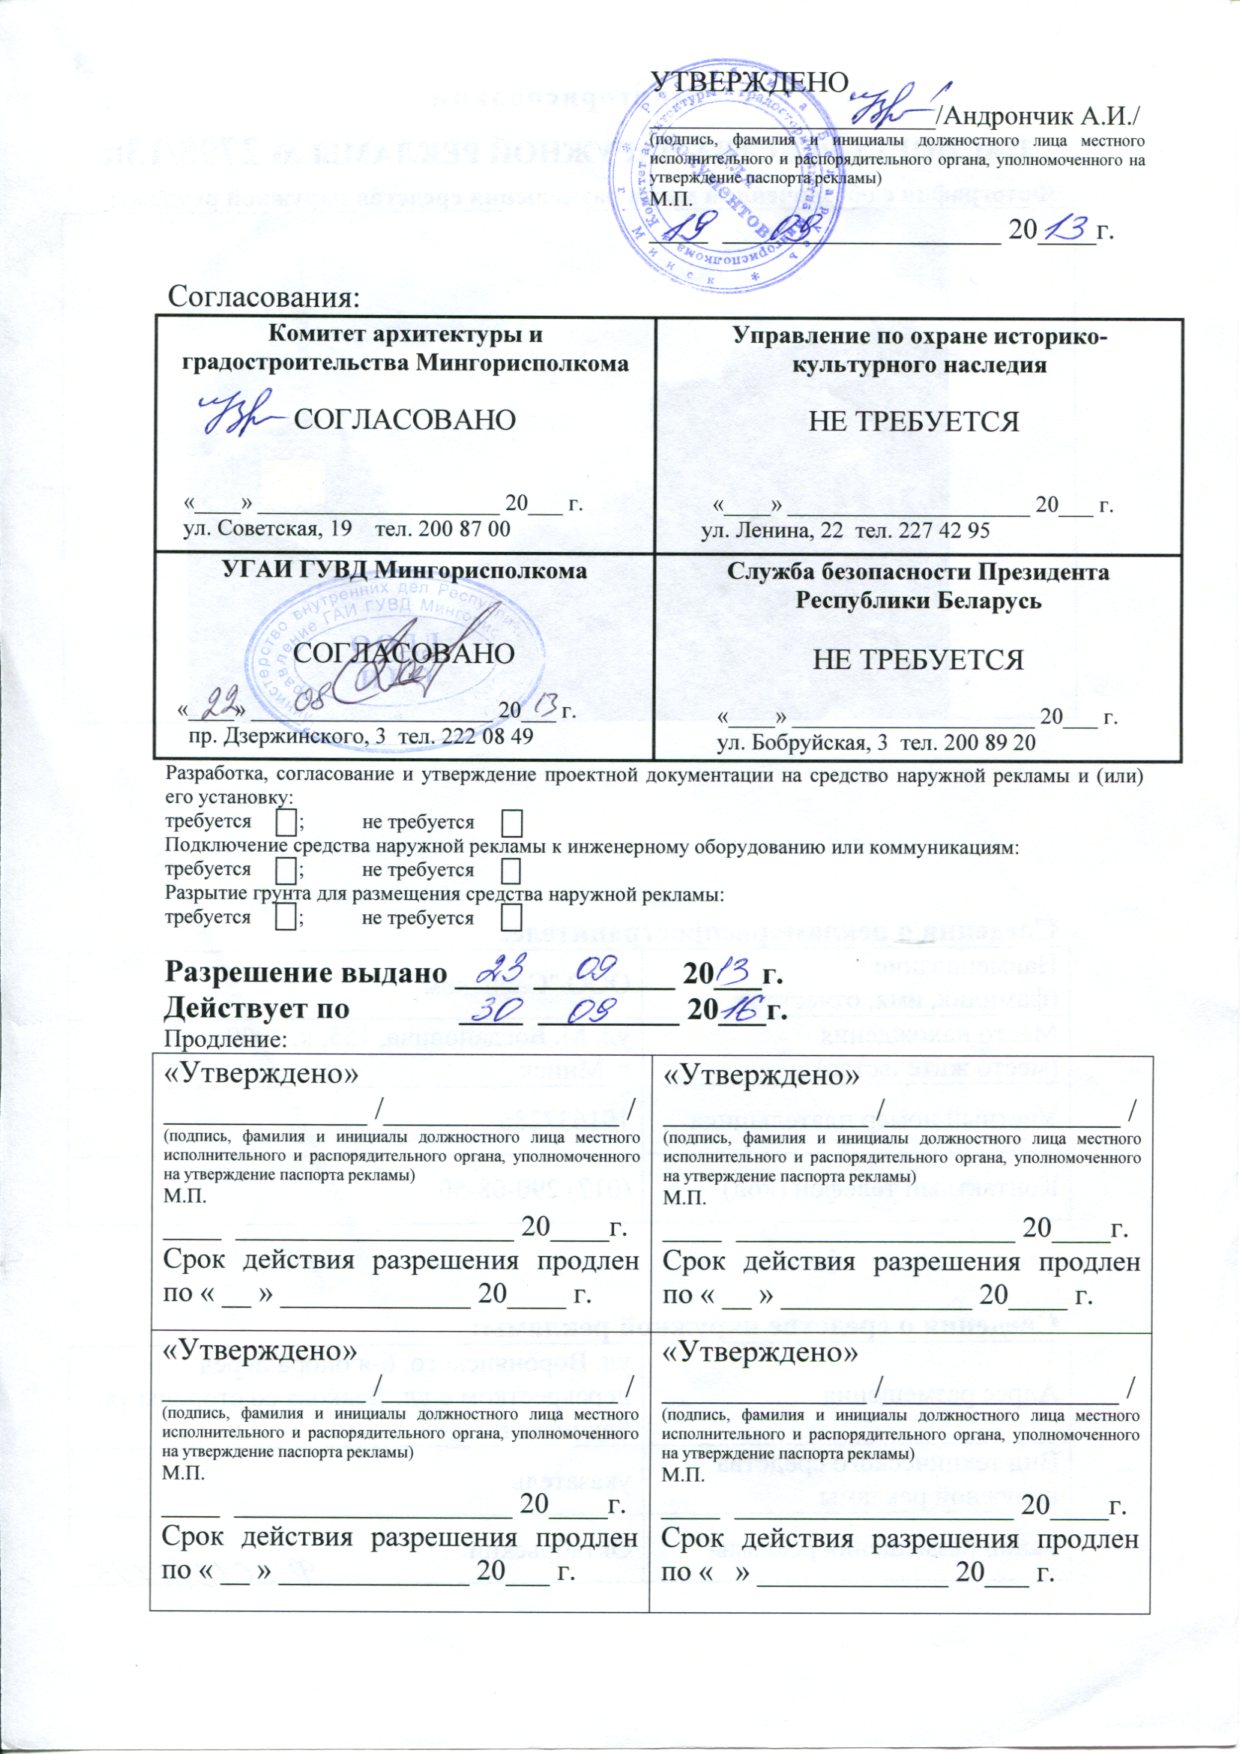 УТВЕРЖДЕНО
____________________/Андрончик А.И./
(подпись, фамилия и инициалы должностного лица местного
исполнительного и распорядительного органа, уполномоченного на
утверждение паспорта рекламы)
М.П.
19 09 2013г.
Согласования:
Комитет архитектуры и
градостроительства Мингорисполкома
СОГЛАСОВАНО
«____» ____________________ 20___ г.
ул. Советская, 19 тел. 200 87 00
Управление по охране историко-
культурного наследия
НЕ ТРЕБУЕТСЯ
«____» ____________________ 20___ г.
ул. Ленина, 22 тел. 227 42 95
УГАИ ГУВД Мингорисполкома
СОГЛАСОВАНО
«22» 08 2013 г.
пр. Дзержинского, 3 тел. 222 08 49
Служба безопасности Президента
Республики Беларусь
НЕ ТРЕБУЕТСЯ
«____» ____________________ 20___ г.
ул. Бобруйская, 3 тел. 200 89 20
Разработка, согласование и утверждение проектной документации на средство наружной рекламы и (или)
его установку:
требуется ; не требуется
Подключение средства наружной рекламы к инженерному оборудованию или коммуникациям:
требуется ; не требуется
Разрытие грунта для размещения средства наружной рекламы:
требуется ; не требуется
Разрешение выдано 23 09 2013г.
Действует по 30 09 2016г.
Продление:
«Утверждено»
______________ /________________ /
(подпись, фамилия и инициалы должностного лица местного
исполнительного и распорядительного органа, уполномоченного
на утверждение паспорта рекламы)
М.П.
____ ___________________ 20____г.
Срок действия разрешения продлен
по « __ » _____________ 20____ г.
«Утверждено»
______________ /________________ /
(подпись, фамилия и инициалы должностного лица местного
исполнительного и распорядительного органа, уполномоченного
на утверждение паспорта рекламы)
М.П.
____ ___________________ 20____г.
Срок действия разрешения продлен
по « __ » _____________ 20____ г.
«Утверждено»
______________ /________________ /
(подпись, фамилия и инициалы должностного лица местного
исполнительного и распорядительного органа, уполномоченного
на утверждение паспорта рекламы)
М.П.
____ ___________________ 20____г.
Срок действия разрешения продлен
по « __ » _____________ 20___ г.
«Утверждено»
______________ /________________ /
(подпись, фамилия и инициалы должностного лица местного
исполнительного и распорядительного органа, уполномоченного
на утверждение паспорта рекламы)
М.П.
____ ___________________ 20____г.
Срок действия разрешения продлен
по « » _____________ 20___ г.